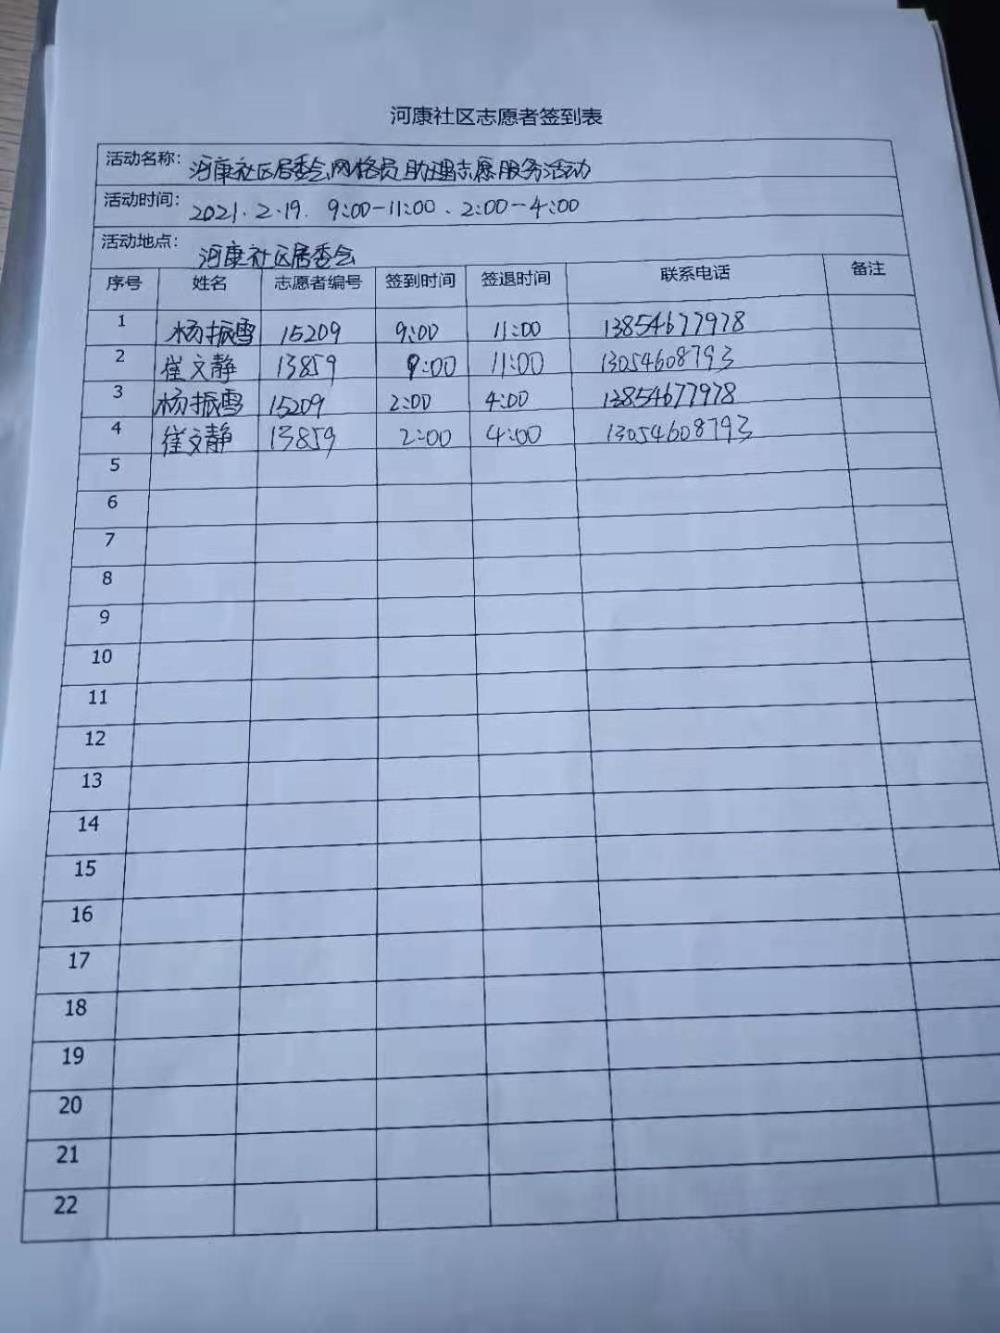 河康社区志愿者签到表
活动名称: 河康社区居委会网格员助理志愿服务活动
活动时间: 2021.2.19. 9:00-11:00、2:00-4:00
活动地点: 河康社区居委会
序号 姓名 志愿者编号 签到时间 签退时间 联系电话 备注
1 杨振雪 15209 9:00 11:00 13854677978
2 崔文静 13859 9:00 11:00 13054608793
3 杨振雪 15209 2:00 4:00 13854677978
4 崔文静 13859 2:00 4:00 13054608793
5
6
7
8
9
10
11
12
13
14
15
16
17
18
19
20
21
22